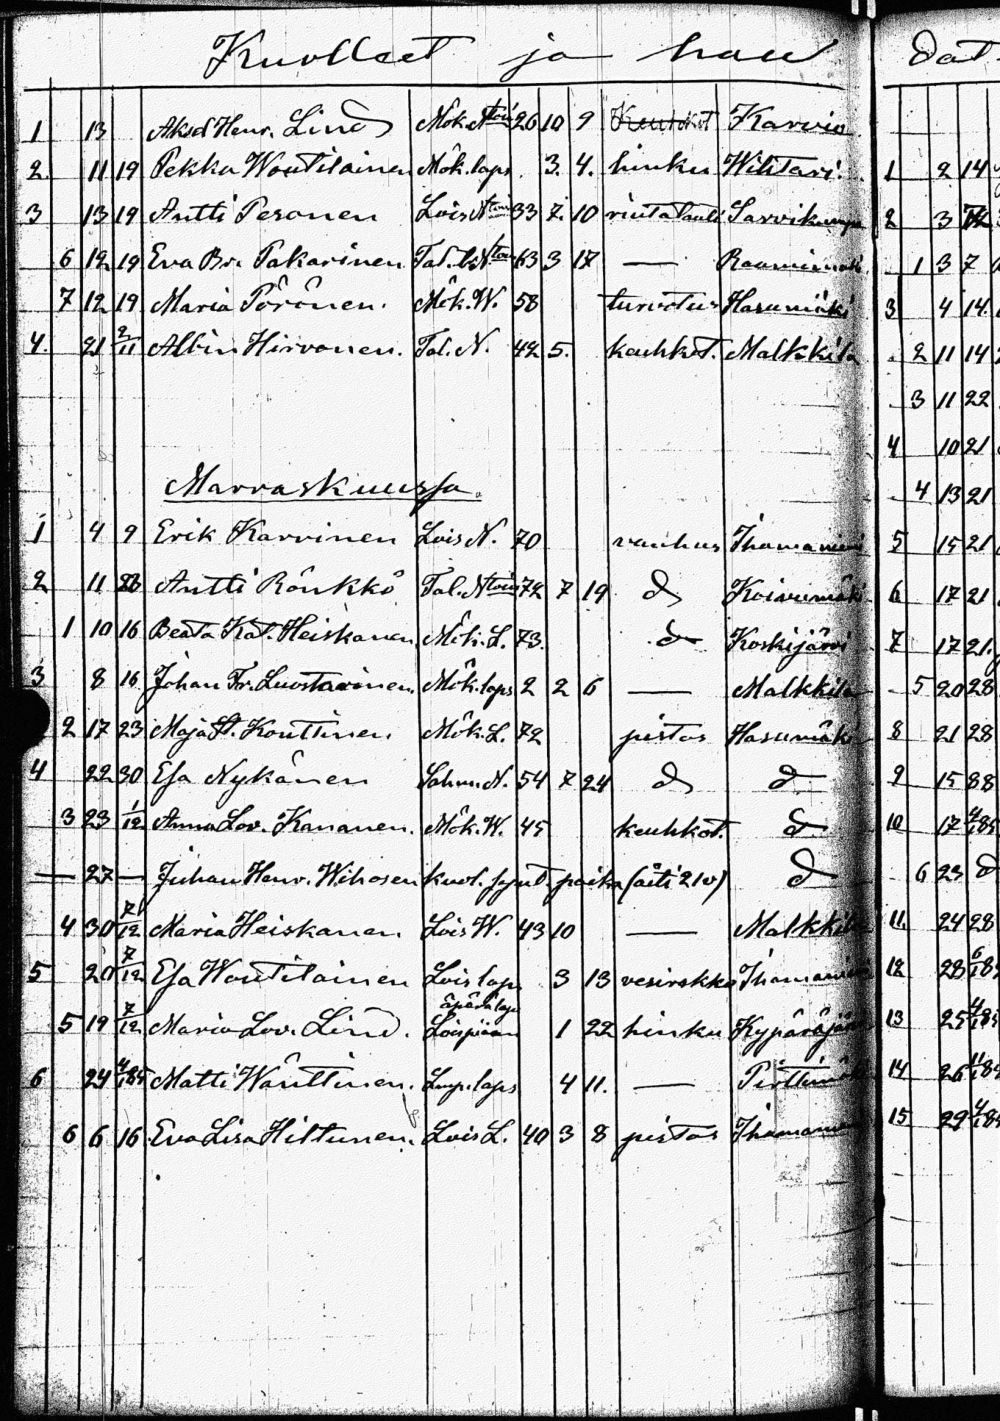 Kuolleet ja hau
1 13 Aksel Henr. Lind Mök. Ntoin 26 10 9 Keuhkot Karvio
2 11 19 Pekka Woutilainen Mök. laps. 3. 4. hinku Wihtari
3 13 19 Antti Pesonen Lois Ntoin 33 7. 10 rintatauti
6 12 19 Eva Br. Pakarinen Tal. 63 3 17 —
7 12 19 Maria Pörönen. Mök. W. 58 turvotus Hasumäki
4. 21 2/11 Albin Hirvonen. Tal. N. 42 5. keuhkot. Malkkila
Marraskuussa.
1 4 9 Erik Karvinen Lois N. 70 vanhus Ihamaniemi
2 11 23 Antti Rönkkö Tal. Ntoin 72 7 19 d Koivumäki
1 10 16 Beata Kat. Heiskanen Mök. L. 73. d Koskijärvi
3 8 16 Johan Fr. Luostarinen Mök. laps 2 2 6 — Malkkila
2 17 23 Maja St. Konttinen Mök. L. 72 pistos Hasumäki
4 22 30 Esa Nykänen N. 54 7 24 d d
3 23 1/12 Anna Lov. Kananen. Mök. W. 45 keuhkot. d
— 27 — Juhan Henr. Wihosen kuol. synt. poika (äiti 21v) d
4 30 7/12 Maria Heiskanen Lois W. 43 10 — Malkkila
5 20 7/12 Esa Woutilainen Lois laps 3 13 vesirokko Ihamaniemi
äpärä laps
5 19 7/12 Maria Lov. Lind. Loispiian 1 22 hinku Kypäräjärvi
6 24 4/1 85 Matti Wänttinen. laps 4 11. — Pirttimäki
6 6 16 Eva Lisa Hiltunen. Lois L. 40 3 8 pistos Ihamaniemi
dat
1 2 14
2 3
1 3 7
3 4 14
2 11 14
3 11 22
4 10 21
4 13 21
5 15 21
6 17 21
7 17 21
5 20 28
8 21 28
9 15 28
10 17
6 23 d
11. 24 28
12 28
13 25
14 26
15 29